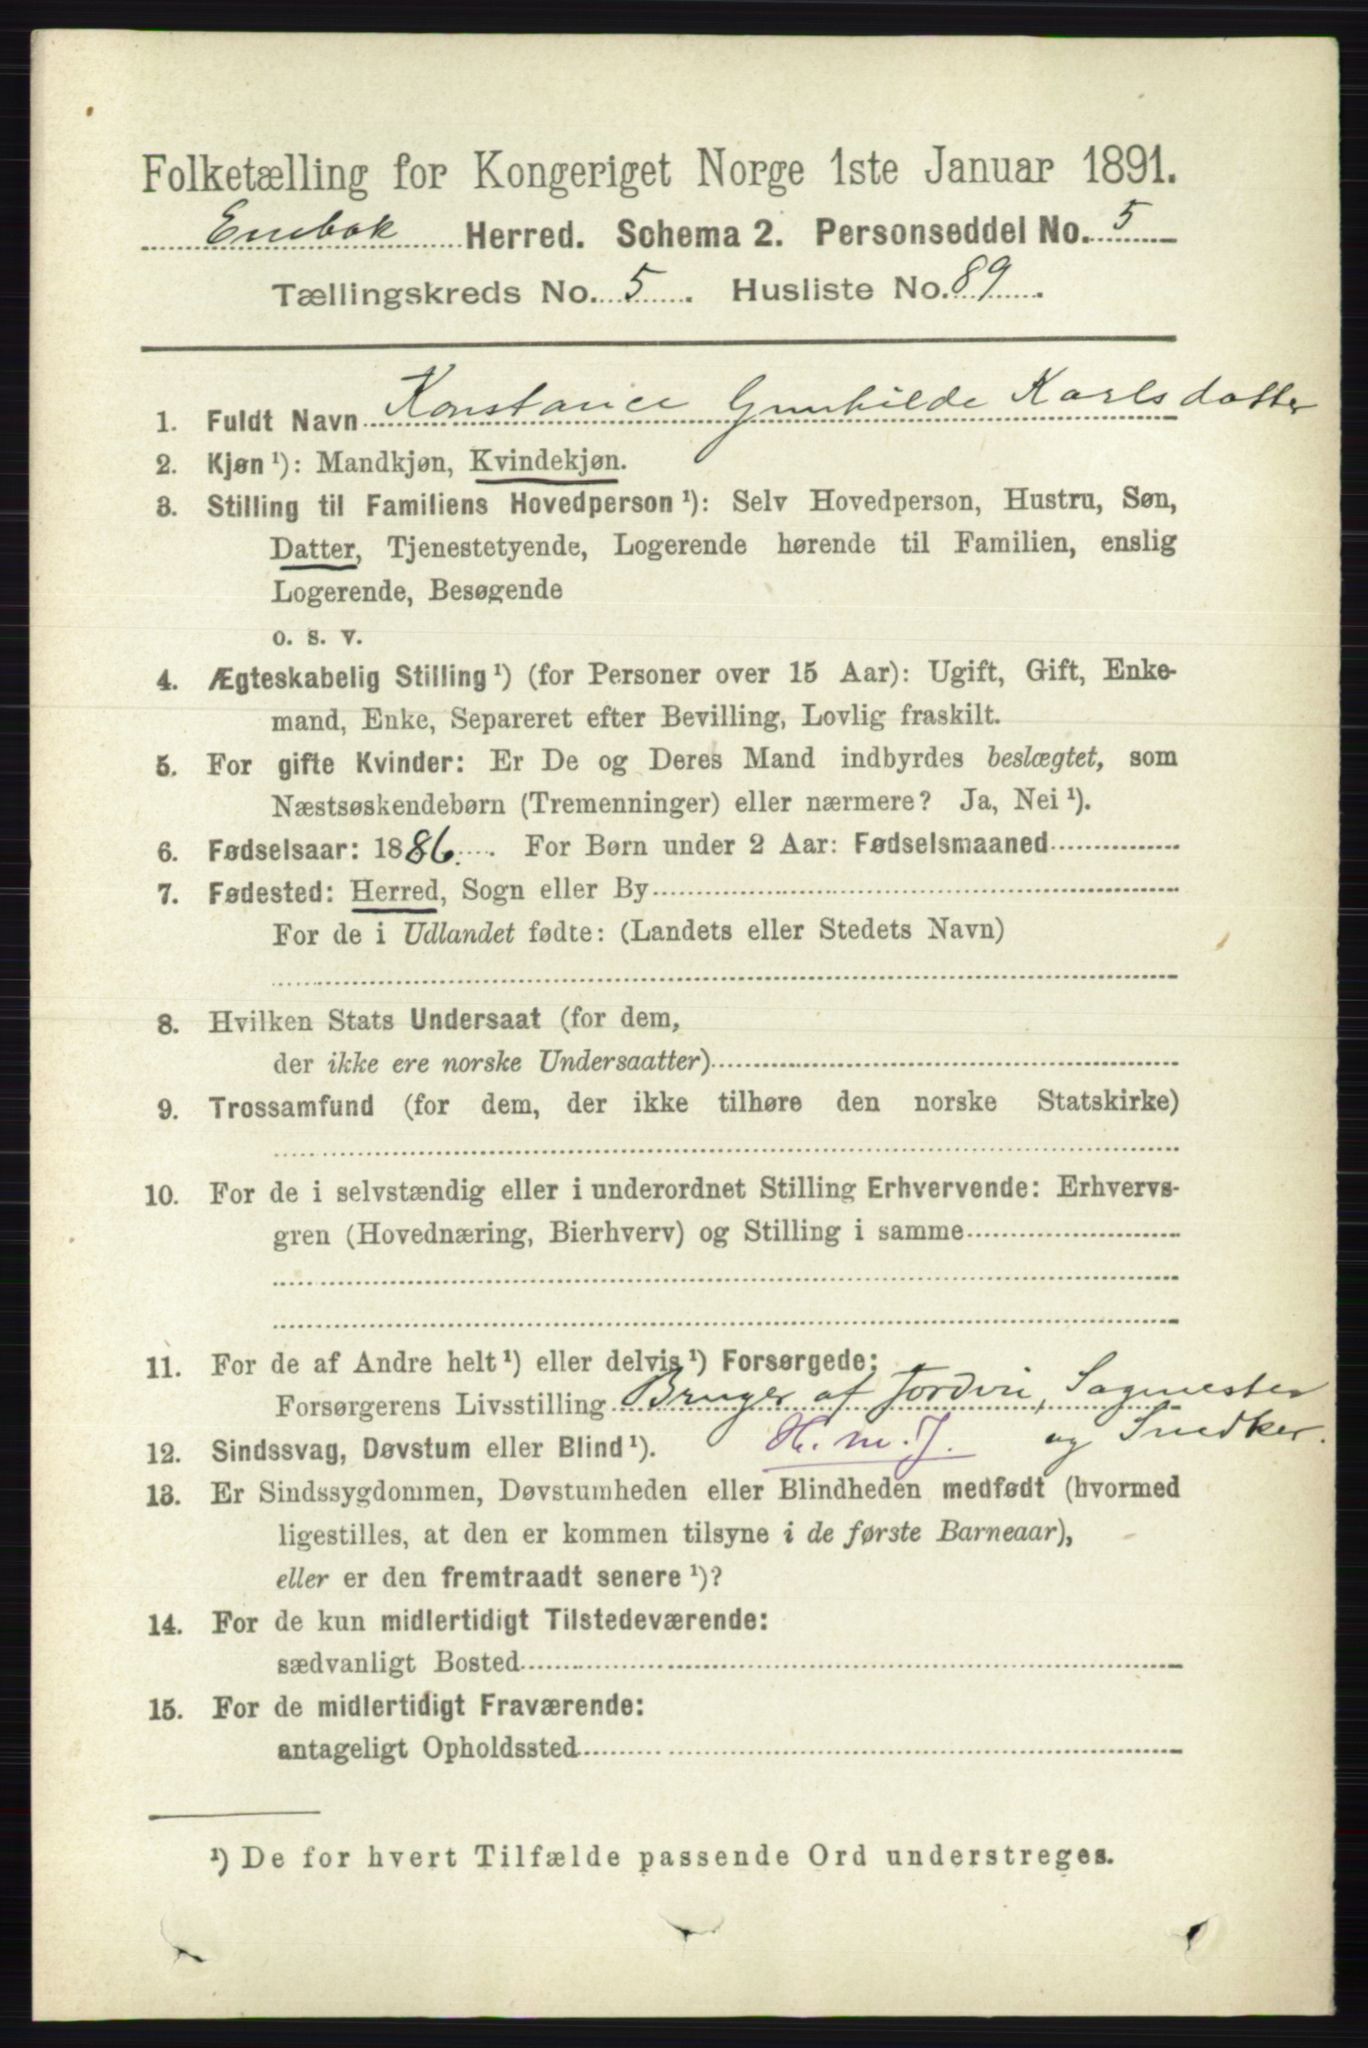 Folketælling for Kongeriget Norge 1ste Januar 1891.
Enebak Herred. Schema 2. Personseddel No. 5
Tællingskreds No. 5. Husliste No. 89.
1. Fuldt Navn Konstance Gunhilde Karlsdatter
2. Kjøn ¹): Mandkjøn, Kvindekjøn.
3. Stilling til Familiens Hovedperson ¹): Selv Hovedperson, Hustru, Søn,
Datter, Tjenestetyende, Logerende hørende til Familien, enslig
Logerende, Besøgende
o. s. v.
4. Ægteskabelig Stilling ¹) (for Personer over 15 Aar): Ugift, Gift, Enke-
mand, Enke, Separeret efter Bevilling, Lovlig fraskilt.
5. For gifte Kvinder: Er De og Deres Mand indbyrdes beslægtet, som
Næstsøskendebørn (Tremenninger) eller nærmere? Ja, Nei ¹).
6. Fødselsaar: 1886. For Børn under 2 Aar: Fødselsmaaned
7. Fødested: Herred, Sogn eller By
For de i Udlandet fødte: (Landets eller Stedets Navn)
8. Hvilken Stats Undersaat (for dem,
der ikke ere norske Undersaatter)
9. Trossamfund (for dem, der ikke tilhøre den norske Statskirke)
10. For de i selvstændig eller i underordnet Stilling Erhvervende: Erhvervs-
gren (Hovednæring, Bierhverv) og Stilling i samme
11. For de af Andre helt ¹) eller delvis ¹) Forsørgede:
Forsørgerens Livsstilling Bruger af Jordvei, Sagmester
og Snedker.
12. Sindssvag, Døvstum eller Blind ¹). H. m. J.
13. Er Sindssygdommen, Døvstumheden eller Blindheden medfødt (hvormed
ligestilles, at den er kommen tilsyne i de første Barneaar),
eller er den fremtraadt senere ¹)?
14. For de kun midlertidigt Tilstedeværende:
sædvanligt Bosted
15. For de midlertidigt Fraværende:
antageligt Opholdssted
¹) De for hvert Tilfælde passende Ord understreges.